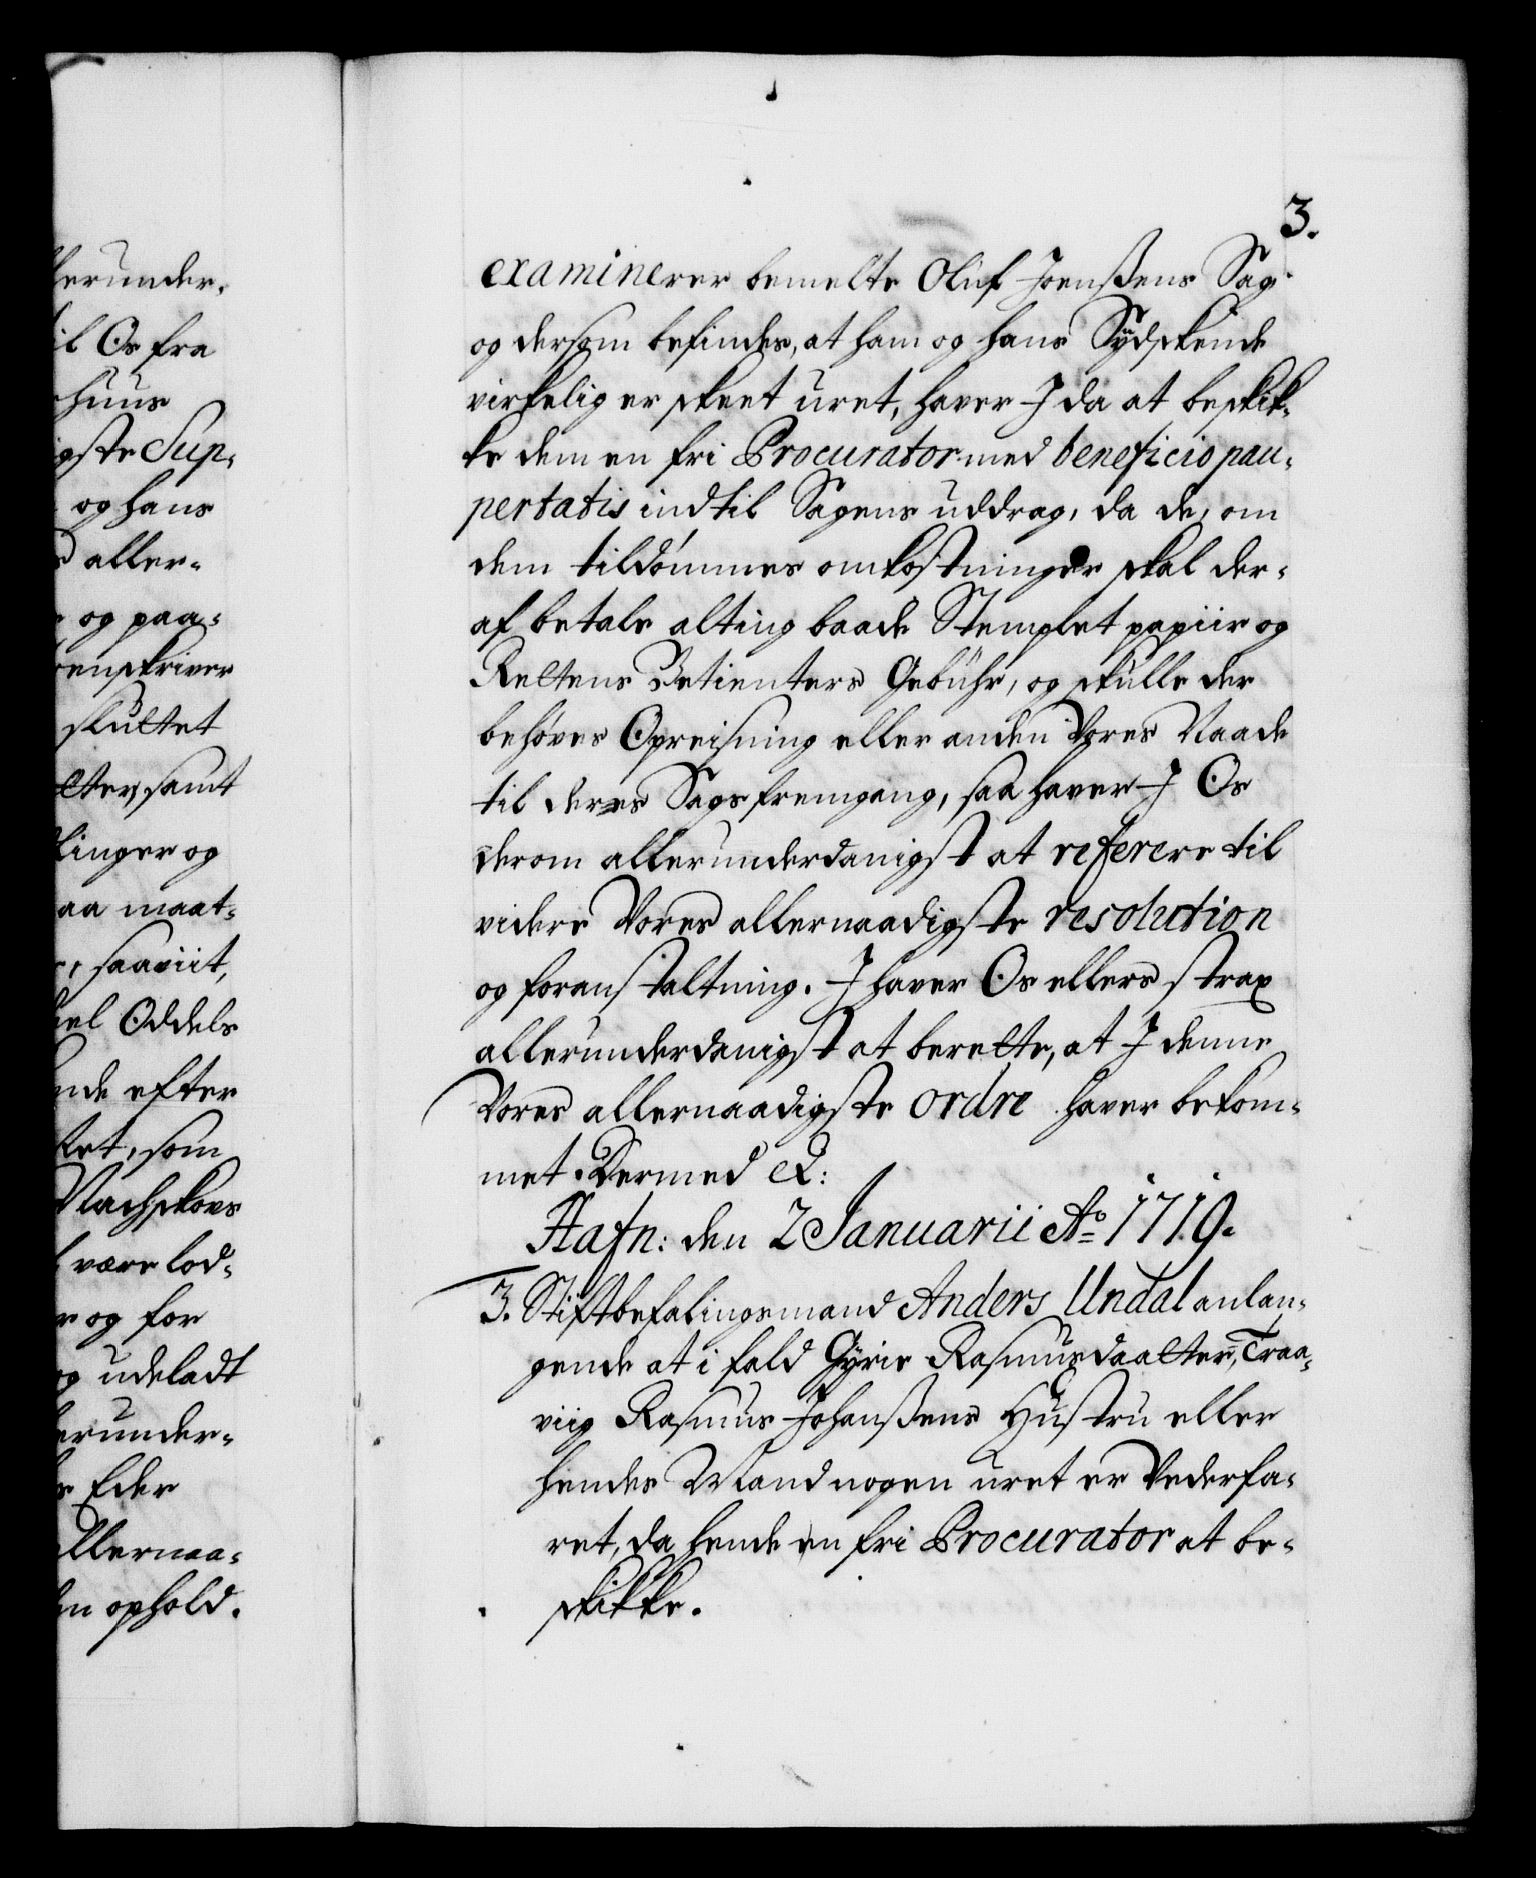 3.
examinerer bemelte Oluf Joenssens Sag
og dersom befindes, at ham og hans Sydskende
virkelig er skeet uret, haver I da at beskik-
ke dem en fri Procurator med beneficio pau-
pertatis indtil Sagens uddrag, da de, om
dem tildömmes omkostninger skal der-
af betale alting baade Stemplet papiir og
Rettens Betienters Gebühr, og skulle der
behøves Opreisning eller anden Vores Naade
til deres Sags fremgang, saa haver I Os
derom allerunderdanigst at referere til
videre Vores allernaadigste resolution
og foranstaltning. I haver Os ellers strax
allerunderdanigst at berette, at I denne
Vores allernaadigste ordre haver bekom-
met. Dermed etc:
Hafn: den 2 Januarii Ao 1719.
3. Stiftbefalingsmand Anders Undal anlan-
gende at i fald Gyrie Rasmusdaatter, Traa-
viig Rasmus Johanssens Hustru eller
hendes Mand nogen uret er Vederfa-
ret, da hende en fri Procurator at be-
skikke.
erunder-
il Os fra
huus
igste Sup-
og hans
aller-
og paa-
enskriver
sluttet
lter, samt
linger og
aa maat-
saaviit,
el Oddels
nde efter
tet, som
Nachskovs
være lod-
og for
og udeladt
erunder-
Eder
allernaa-
en ophold.